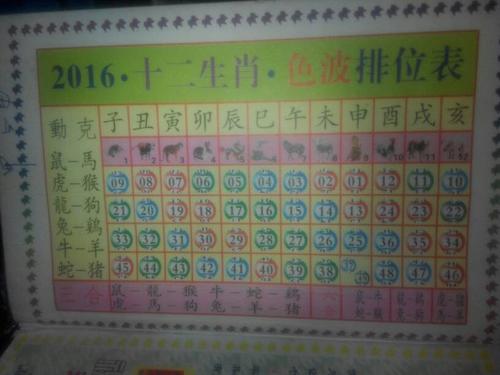 2016·十二生肖·色波排位表
動 克 子 丑 寅 卯 辰 巳 午 未 申 酉 戌 亥
1 2 3 4 5 6 7 8 9 10 11 12
鼠-馬 09 08 07 06 05 04 03 02 01 12 11 10
虎-猴
龍-狗 21 20 19 18 17 16 15 14 13 24 23 22
兔-鷄 33 32 31 30 29 28 27 26 25 36 35 34
牛-羊
蛇-猪 45 44 43 42 41 40 39 38 48 47 46
三合 鼠-龍-猴 牛-蛇-鷄 六合 鼠-牛 龍-鷄 虎-猪
虎-馬-狗 兔-羊-猪 蛇-猴 兔-狗 馬-羊